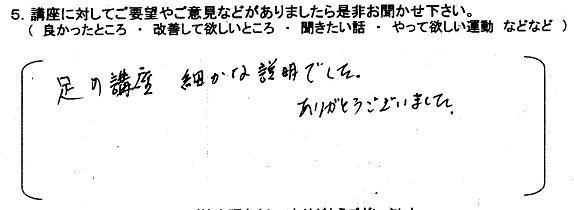 5. 講座に対してご要望やご意見などがありましたら是非お聞かせ下さい。
( 良かったところ ・ 改善して欲しいところ ・ 聞きたい話 ・ やって欲しい運動 などなど )
足の講座 細かな説明でした。
ありがとうございました。